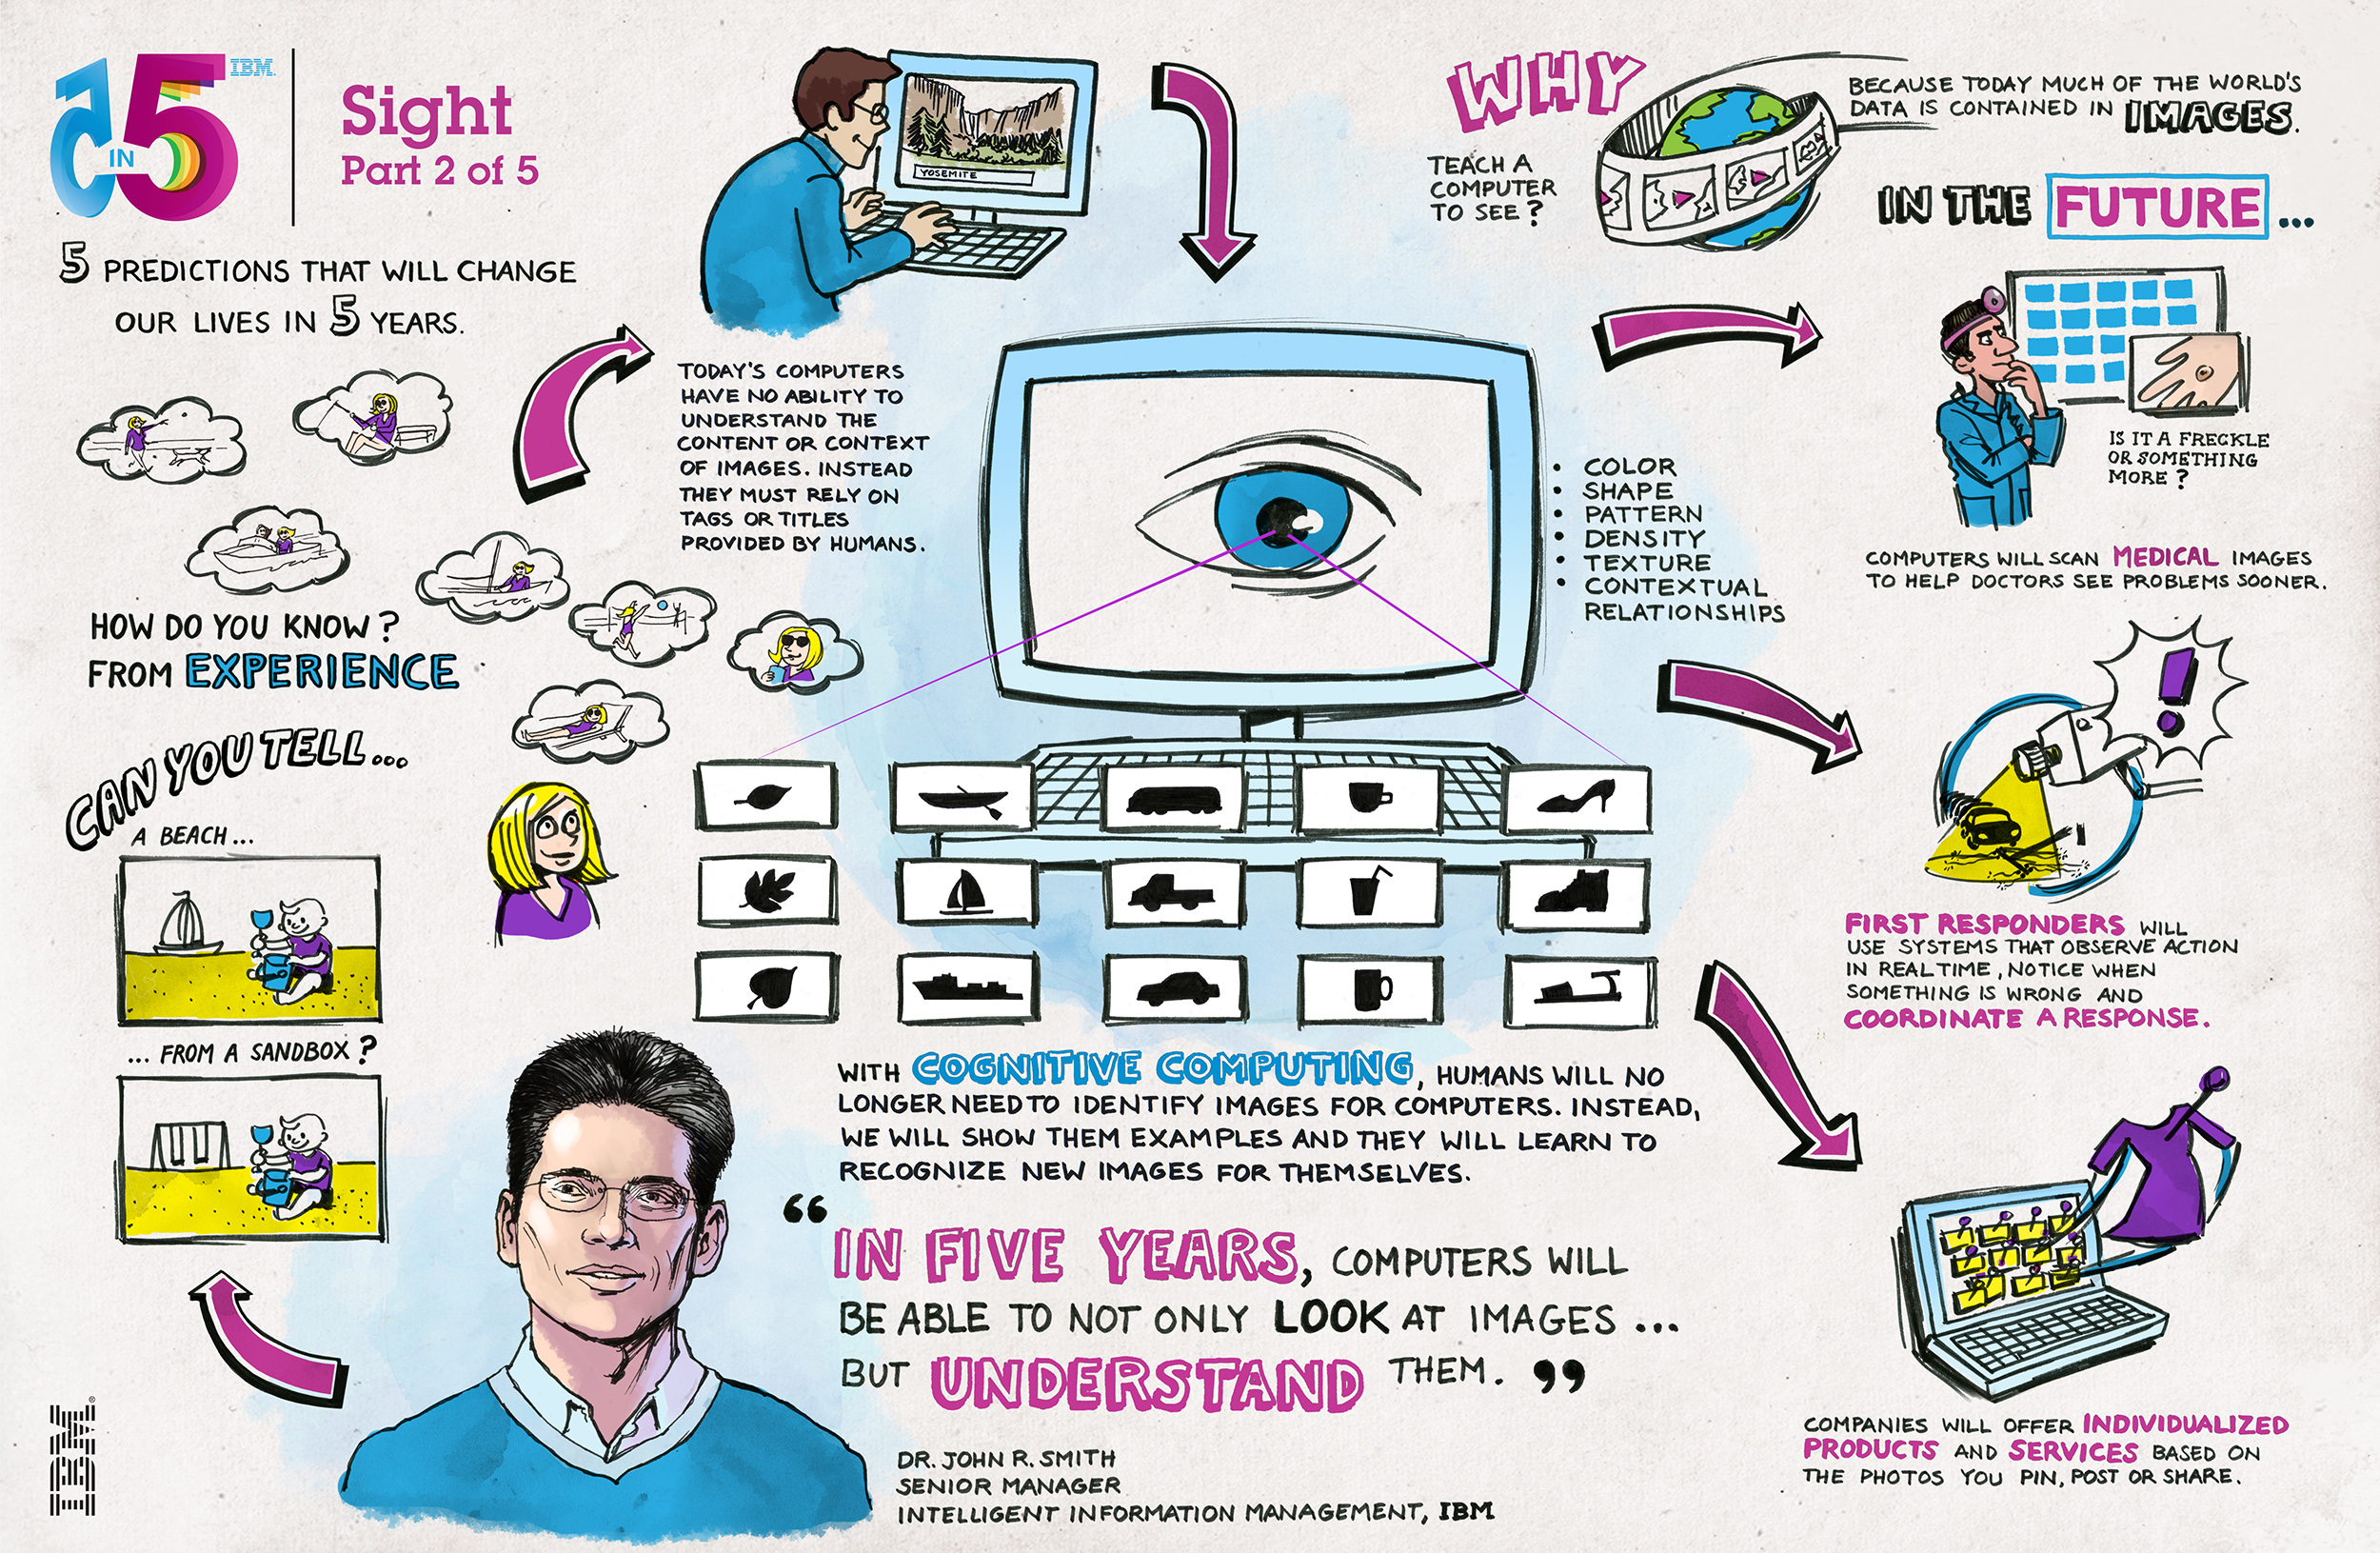 5 IN 5
IBM.
Sight
Part 2 of 5
5 PREDICTIONS THAT WILL CHANGE
OUR LIVES IN 5 YEARS.
HOW DO YOU KNOW?
FROM EXPERIENCE
CAN YOU TELL...
A BEACH...
... FROM A SANDBOX?
YOSEMITE
TODAY'S COMPUTERS
HAVE NO ABILITY TO
UNDERSTAND THE
CONTENT OR CONTEXT
OF IMAGES. INSTEAD
THEY MUST RELY ON
TAGS OR TITLES
PROVIDED BY HUMANS.
• COLOR
• SHAPE
• PATTERN
• DENSITY
• TEXTURE
• CONTEXTUAL
RELATIONSHIPS
WITH COGNITIVE COMPUTING, HUMANS WILL NO
LONGER NEED TO IDENTIFY IMAGES FOR COMPUTERS. INSTEAD,
WE WILL SHOW THEM EXAMPLES AND THEY WILL LEARN TO
RECOGNIZE NEW IMAGES FOR THEMSELVES.
“IN FIVE YEARS, COMPUTERS WILL
BE ABLE TO NOT ONLY LOOK AT IMAGES ...
BUT UNDERSTAND THEM.”
DR. JOHN R. SMITH
SENIOR MANAGER
INTELLIGENT INFORMATION MANAGEMENT, IBM
WHY
TEACH A
COMPUTER
TO SEE?
BECAUSE TODAY MUCH OF THE WORLD'S
DATA IS CONTAINED IN IMAGES.
IN THE FUTURE...
IS IT A FRECKLE
OR SOMETHING
MORE?
COMPUTERS WILL SCAN MEDICAL IMAGES
TO HELP DOCTORS SEE PROBLEMS SOONER.
!
FIRST RESPONDERS WILL
USE SYSTEMS THAT OBSERVE ACTION
IN REAL TIME, NOTICE WHEN
SOMETHING IS WRONG AND
COORDINATE A RESPONSE.
COMPANIES WILL OFFER INDIVIDUALIZED
PRODUCTS AND SERVICES BASED ON
THE PHOTOS YOU PIN, POST OR SHARE.
IBM®